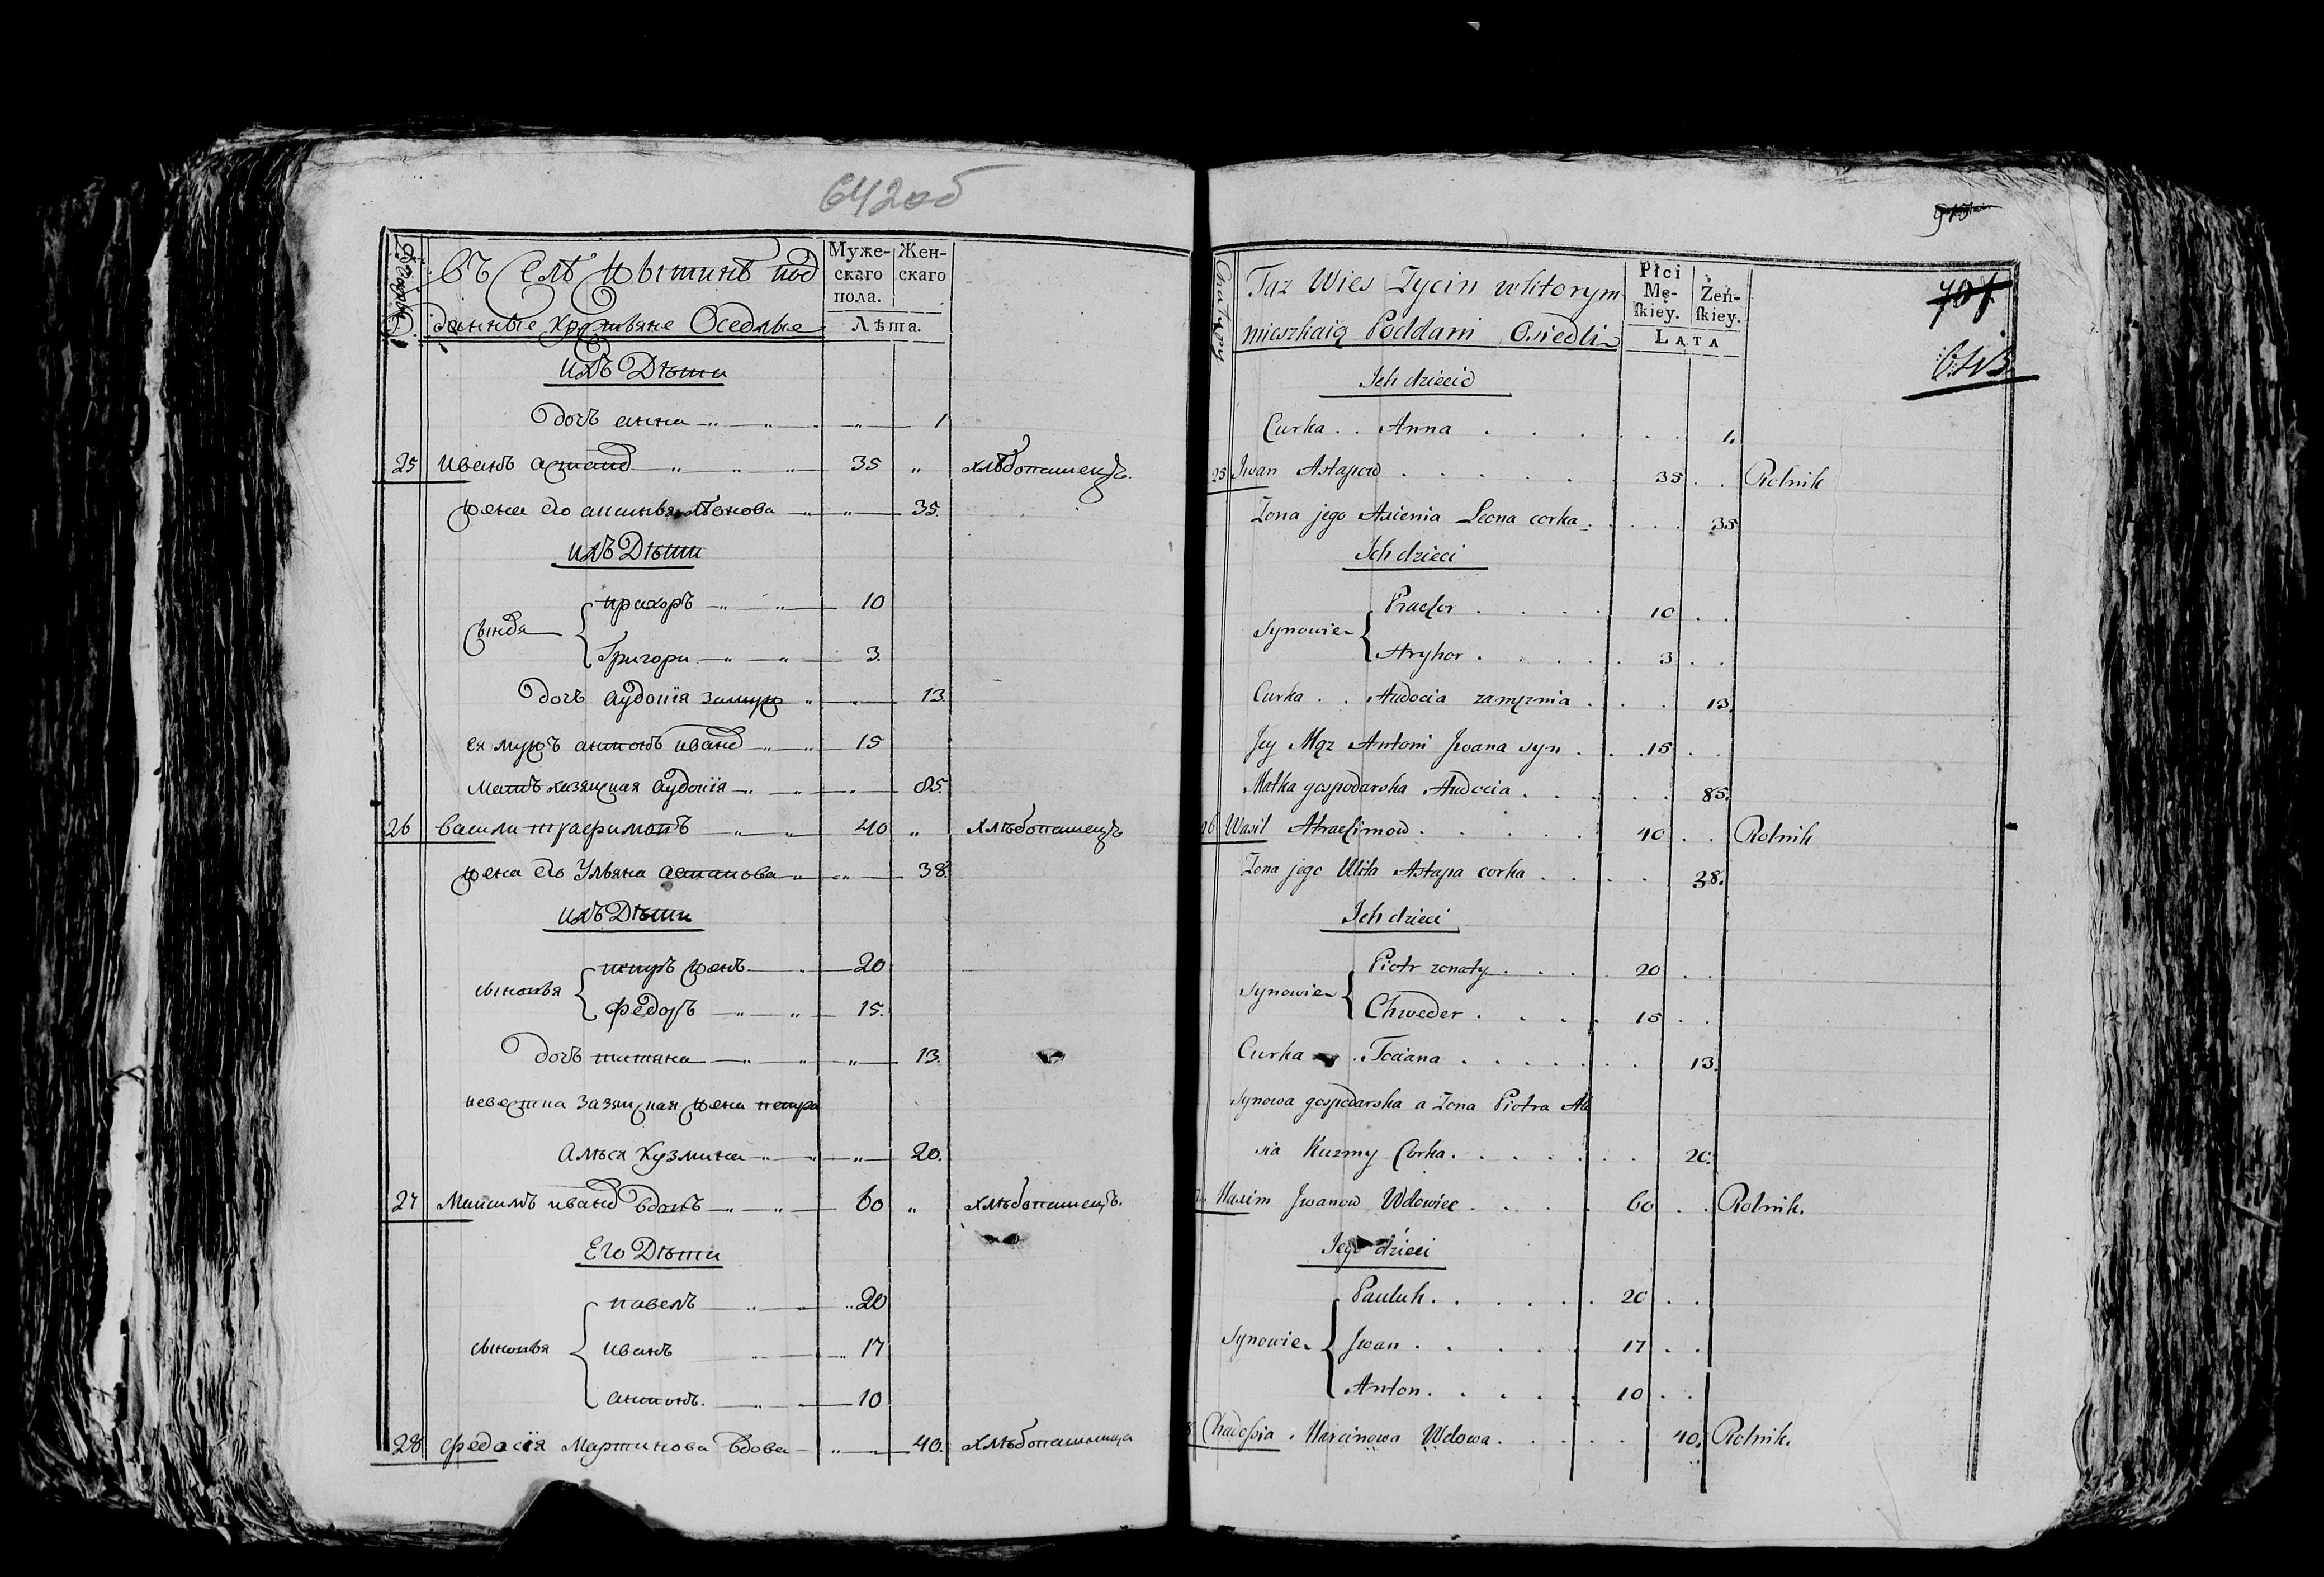 642об
Въ Селѣ Жытинѣ под
данные крестьяне Оседлые
Муже-
скаго
пола.
Жен-
скаго
Лѣта.
ихъ Дѣти
дочъ анна 1
25 иванъ астапов 35 " хлѣбопашецъ.
жена его аксинья Леонова " 35.
ихъ Дѣти
сынов я
прахоръ 10
Григори 3.
дочъ аудокія замуж " 13.
ея мужъ антонъ иванов 15
Матъ хазяиская аудокія " 85.
26 василі трахимовъ 40 " хлѣбопашецъ
жена его Ульяна астапова " 38.
ихъ Дѣти
сыновья
петръ жен. 20
Федоръ 15.
дочъ татяна " 13.
невестка хазяиская жена петра
Алѣся Кузмина " 20.
27 Максимъ иванов вдовъ 60 " хлѣбопашецъ.
Его Дѣти
сыновья
павелъ 20
иванъ 17
антонъ. 10
28 федосія Мартинова вдова " 40. хлѣбопашница
915
701
643
Chatupy
Taz Wies Zycin wktorym
mieszkaią Poddani Osiedli
Płci
Mę-
ſkiey.
Żeń-
ſkiey.
Lata
Ich dziecie
Curka . . Anna 1.
25 Jwan Astapow 35 . . Rolnik
Zona jego Axienia Leona corka 35
Ich dzieci
Synowie
Prachor 10 . .
Hryhor 3 . .
Curka . . Audocia zamęznia 13.
Jey Mąz Antoni Jwana syn 15 . .
Matka gospodarska Audocia 85.
26 Wasil Atrachimow 40 . . Rolnik
Zona jego Ulita Astapa corka 38.
Ich dzieci
Synowie
Piotr zonaty 20 . .
Chweder 15 . .
Curka . Taciana 13.
Synowa gospodarska a Zona Piotra Ale
sia Kuzmy Corka 20.
Maxim Jwanow Wdowiec 60 . . Rolnik.
Jego dzieci
Synowie
Pauluk 20 . .
Jwan 17 . .
Anton 10 . .
Chadossia Marcinowa Wdowa 40. Rolnik.